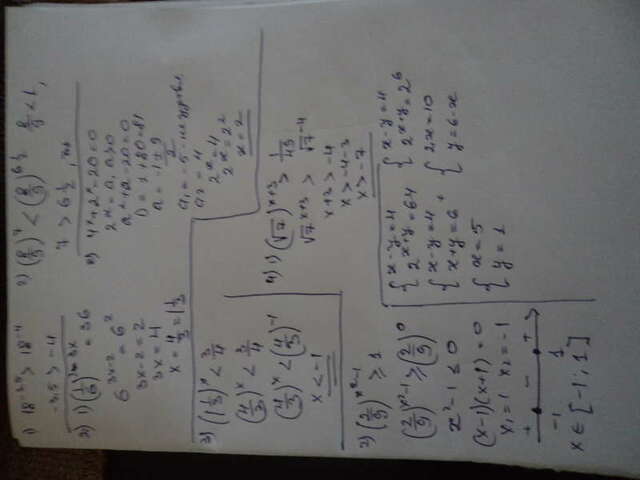 1) 18^-3,5 > 18^-4
-3,5 > -4
2) (8/9)^7 < (8/9)^6 1/2, 8/9 < 1,
7 > 6 1/2
2) 1) (1/6)^2-3x = 36
6^3x-2 = 6^2
3x-2 = 2
3x = 4
x = 4/3 = 1 1/3
4^x+2^x-20=0
2^x = a, a>0
a^2+a-20=0
D = 1+80=81
a = -1±9 / 2
a1 = -5 - не удовл.
a2 = 4
2^x = 4
2^x = 2^2
x = 2
3) (1 1/3)^x < 3/4
(4/3)^x < 3/4
(4/3)^x < (4/3)^-1
x < -1
4) 1) (√7)^x+3 > 1/49
√7^x+3 > √7^-4
x+3 > -4
x > -4-3
x > -7
2) (2/9)^x^2-1 ≥ 1
(2/9)^x^2-1 ≥ (2/9)^0
x^2-1 ≤ 0
(x-1)(x+1) = 0
x1 = 1 x2 = -1
+ - +
-1 1
x ∈ [-1; 1]
{ x-y=4
2^x+y=64
{ x-y=4
2^x+y=2^6
{ x-y=4 +
x+y=6
{ 2x=10
y=6-x
{ x=5
y=1